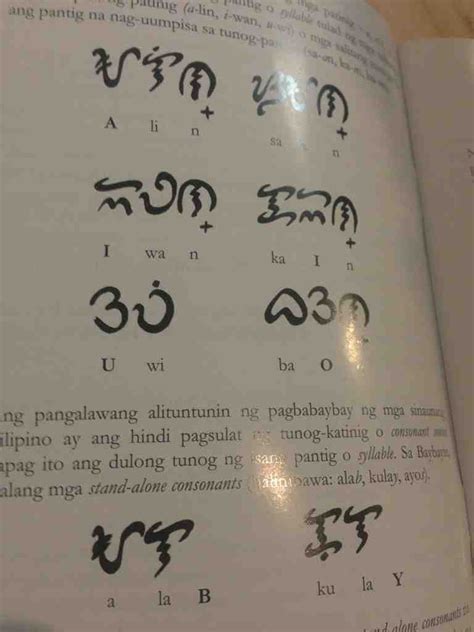 patinig (a-lin, i-wan, u-wi) o mga salitang
o syllable tulad ng mga
ang pantig na nag-uumpisa sa tunog- (sa-an, ka-in,
ᜀᜎᜒᜈ᜔ ᜐᜀᜈ᜔
A li n sa n
ᜁᜏᜈ᜔ ᜃᜁᜈ᜔
I wa n ka I n
ᜂᜏᜒ ᜊᜂᜈ᜔
U wi ba O
ng pangalawang alituntunin ng pagbabaybay ng mga sinaunang
ilipino ay ang hindi pagsulat ng tunog-katinig o consonant
apag ito ang dulong tunog ng isang pantig o syllable. Sa Baybayin,
alang mga stand-alone consonants (halimbawa: alab, kulay, ayos).
ᜀᜎ ᜃᜓᜎ
a la B ku la Y
stand-alone consonants